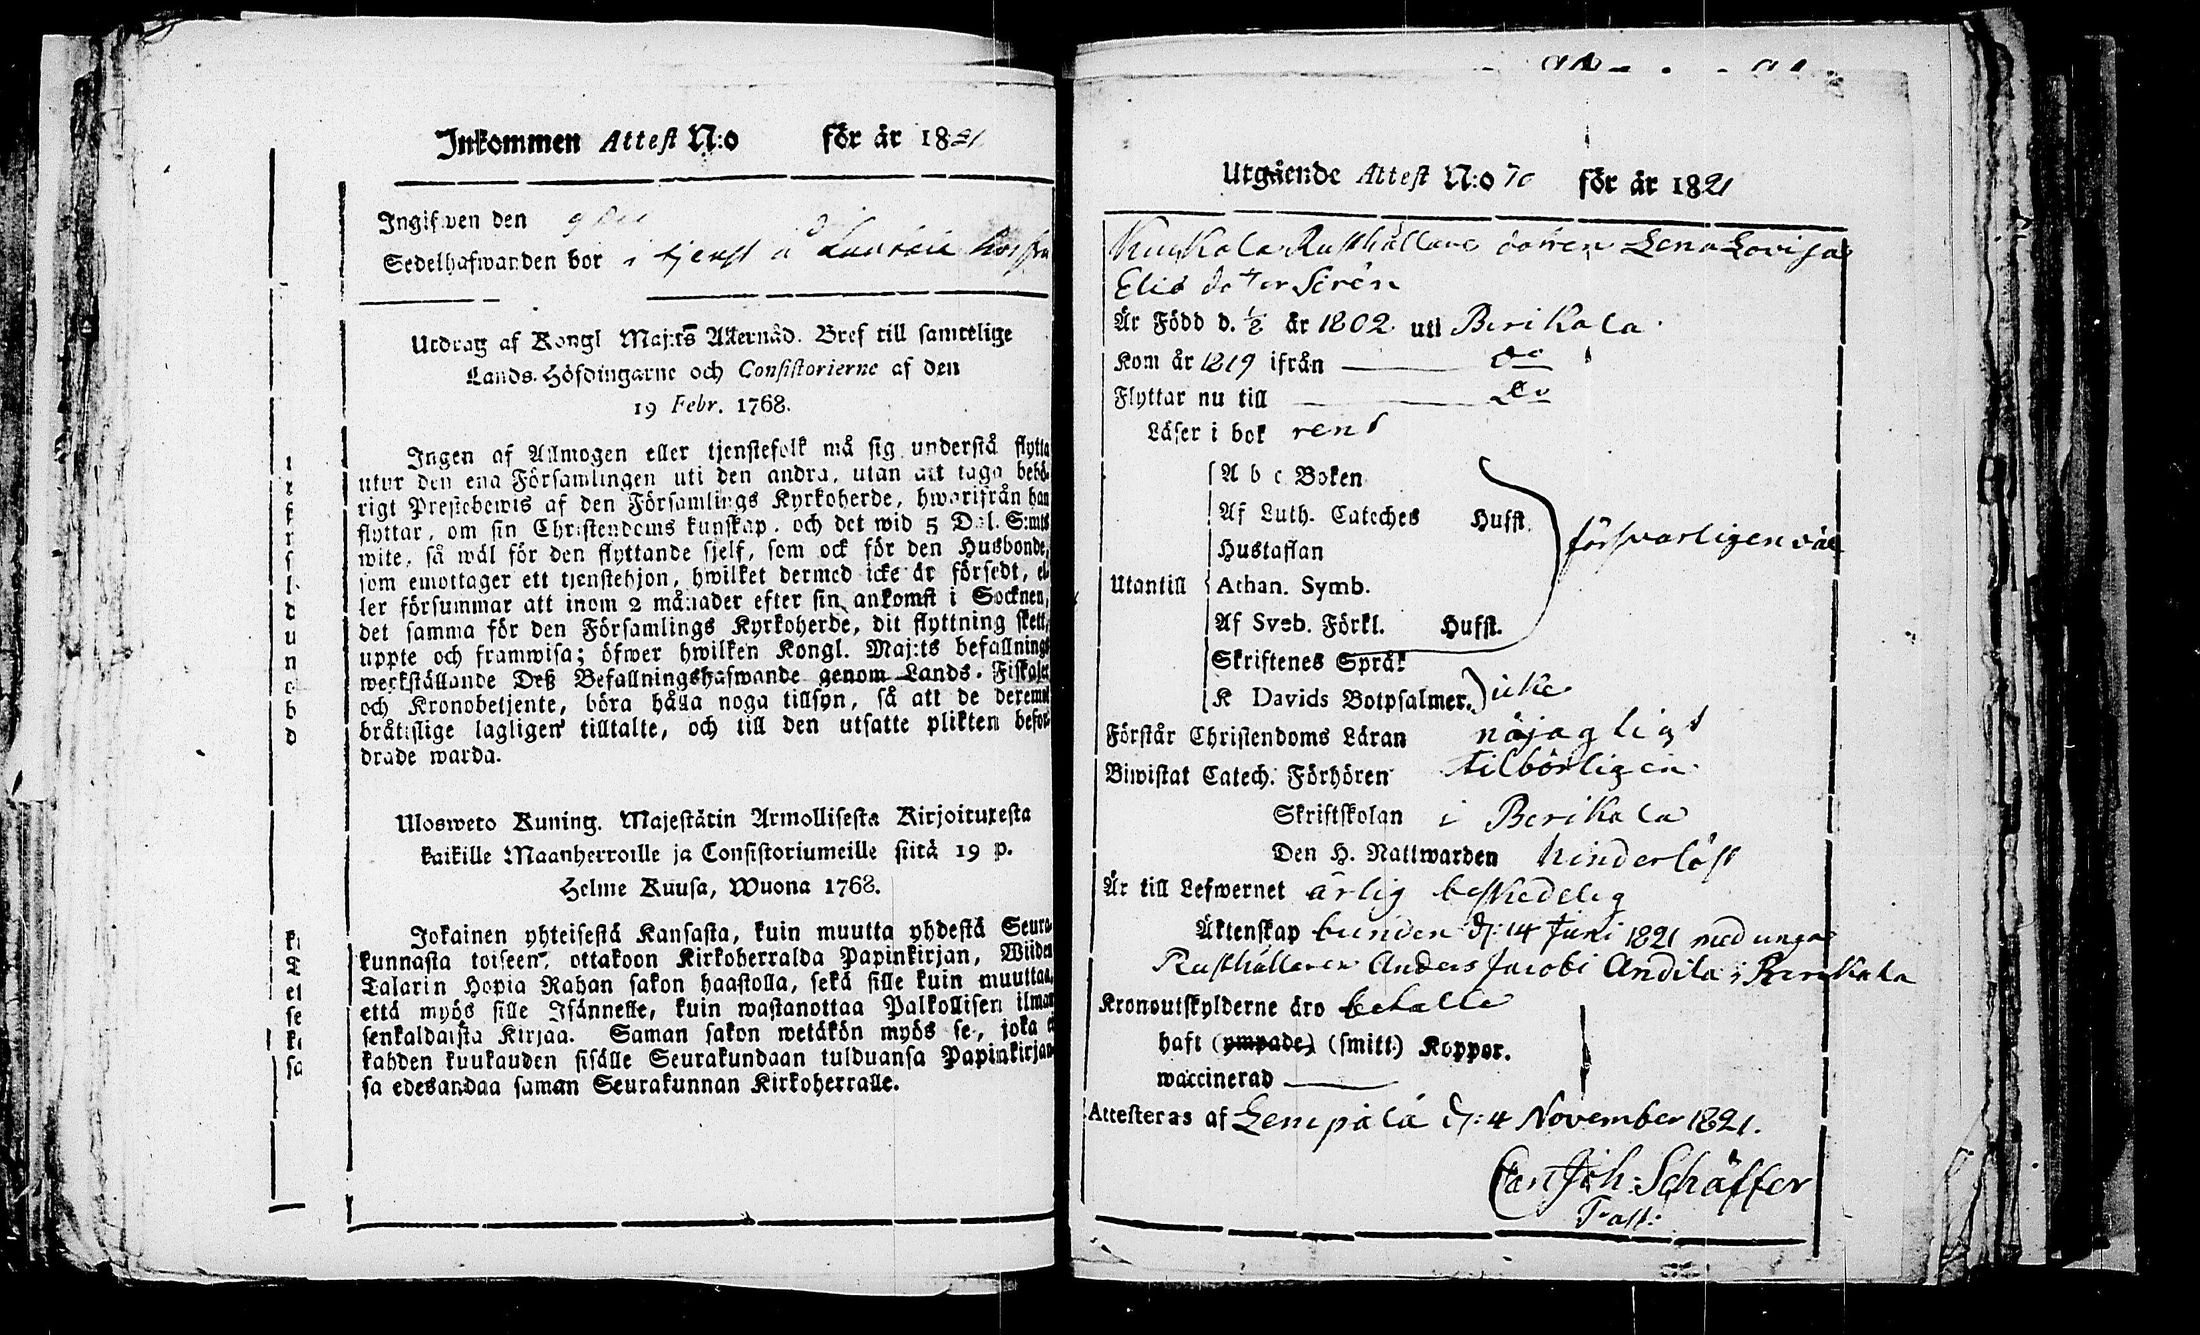 Inkommen Attest N:o för år 1821
Ingifwen den
Sedelhafwanden bor i tjenst å hos
Utdrag af Kongl Maj:ts Allernåd. Bref till samtelige
Lands-Höfdingarne och Consistorierne af den
19 Febr. 1768.
Ingen af Allmogen eller tjenstefolk må sig understå flytta
utur den ena Församlingen uti den andra, utan att taga behö-
rigt Prestebewis af den Församlings Kyrkoherde, hwarifrån han
flyttar, om sin Christendoms kunskap, och det wid 5 Dal. S:mts
wite, så wäl för den flyttande sjelf, som ock för den Husbonde,
som emottager ett tjenstehjon, hwilket dermed icke är försedt, el-
ler försummar att inom 2 månader efter sin ankomst i Socknen,
det samma för den Församlings Kyrkoherde, dit flyttning skett,
uppte och framwisa; öfwer hwilken Kongl. Maj:ts befallnings
werkställande Deß Befallningshafwande genom Lands-Fiskaler
och Kronobetjente, böra hålla noga tillsyn, så att de deremot
bråtislige lagligen tilltalte, och till den utsatte plikten befor-
drade warda.
Ulosweto Kuning. Majestätin Armollisesta Kirjoituxesta
kaikille Maanherroille ja Consistoriumeille siitä 19 p.
Helme Kuusa, Wuona 1768.
Jokainen yhteisestä Kansasta, kuin muutta yhdestä Seura-
kunnasta toiseen, ottakoon Kirkoherralda Papinkirjan, Wiiden
Talarin Hopia Rahan sakon haastolla, sekä sille kuin muuttaa,
että myös sille Isännelle, kuin wastanottaa Palkollisen ilman
senkaldaista Kirjaa. Saman sakon wetäkön myös se, joka ei
kahden kuukauden sisälle Seurakundaan tulduansa Papinkirjan-
sa edesandaa saman Seurakunnan Kirkoherralle.
Utgående Attest N:o 70 för år 1821
Rusthållare dotren Lena Lovisa
Elis doter Serén
Är Född d. 1/2 år 1802 uti Berikala
Kom år 1819 ifrån do
Flyttar nu till do
Läser i bok rent
Utantill
A b c Boken
Af Luth. Cateches Husfl.
Hustaflan
försvarligen väl
Athan. Symb.
Af Sveb. Förkl. Husfl.
Skriftenes Språk
K Davids Botpsalmer. icke
Förstår Christendoms Läran nöjagligt
Biwistat Catech. Förhören tilbörligen
Skriftskolan i Berikala
Den H. Nattwarden hinderlöst
Är till Lefwernet ärlig beskedelig
Äktenskap bunden d: 14 Juni 1821 med unga
Rusthållaren Anders Jacobi Andila i Berikala
Kronoutskylderne äro betalte
haft (ympade) (smitt:) Koppor.
waccinerad
Attesteras af Lempälä d: 4 November 1821.
Carl Joh: Schäffer
Past: